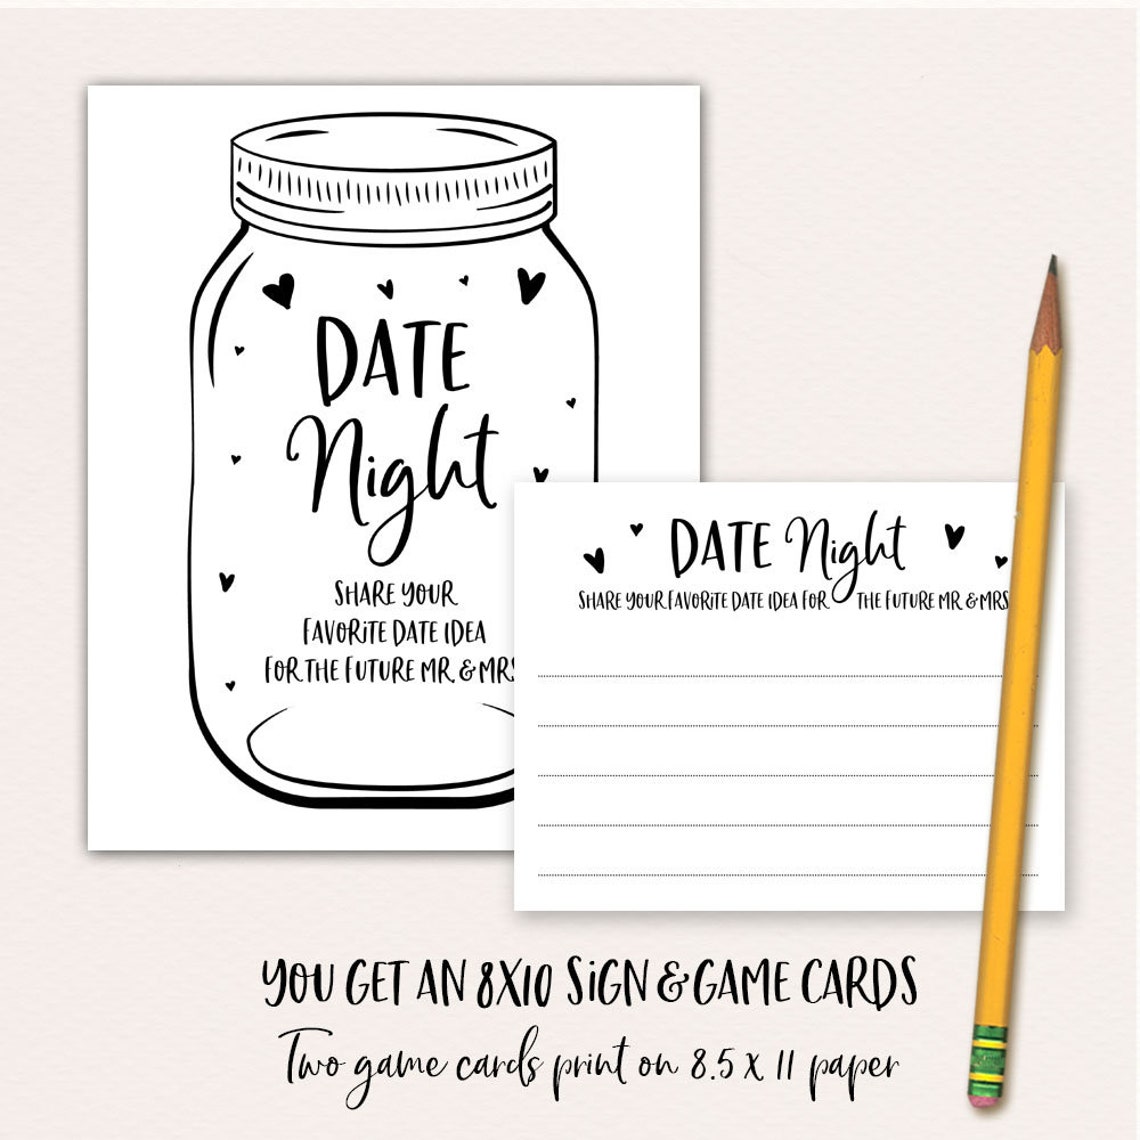 DATE
Night
SHARE YOUR
FAVORITE DATE IDEA
FOR THE FUTURE MR. & MRS
DATE Night
SHARE YOUR FAVORITE DATE IDEA FOR THE FUTURE MR & MRS
YOU GET AN 8X10 SIGN & GAME CARDS
Two game cards print on 8.5 x 11 paper